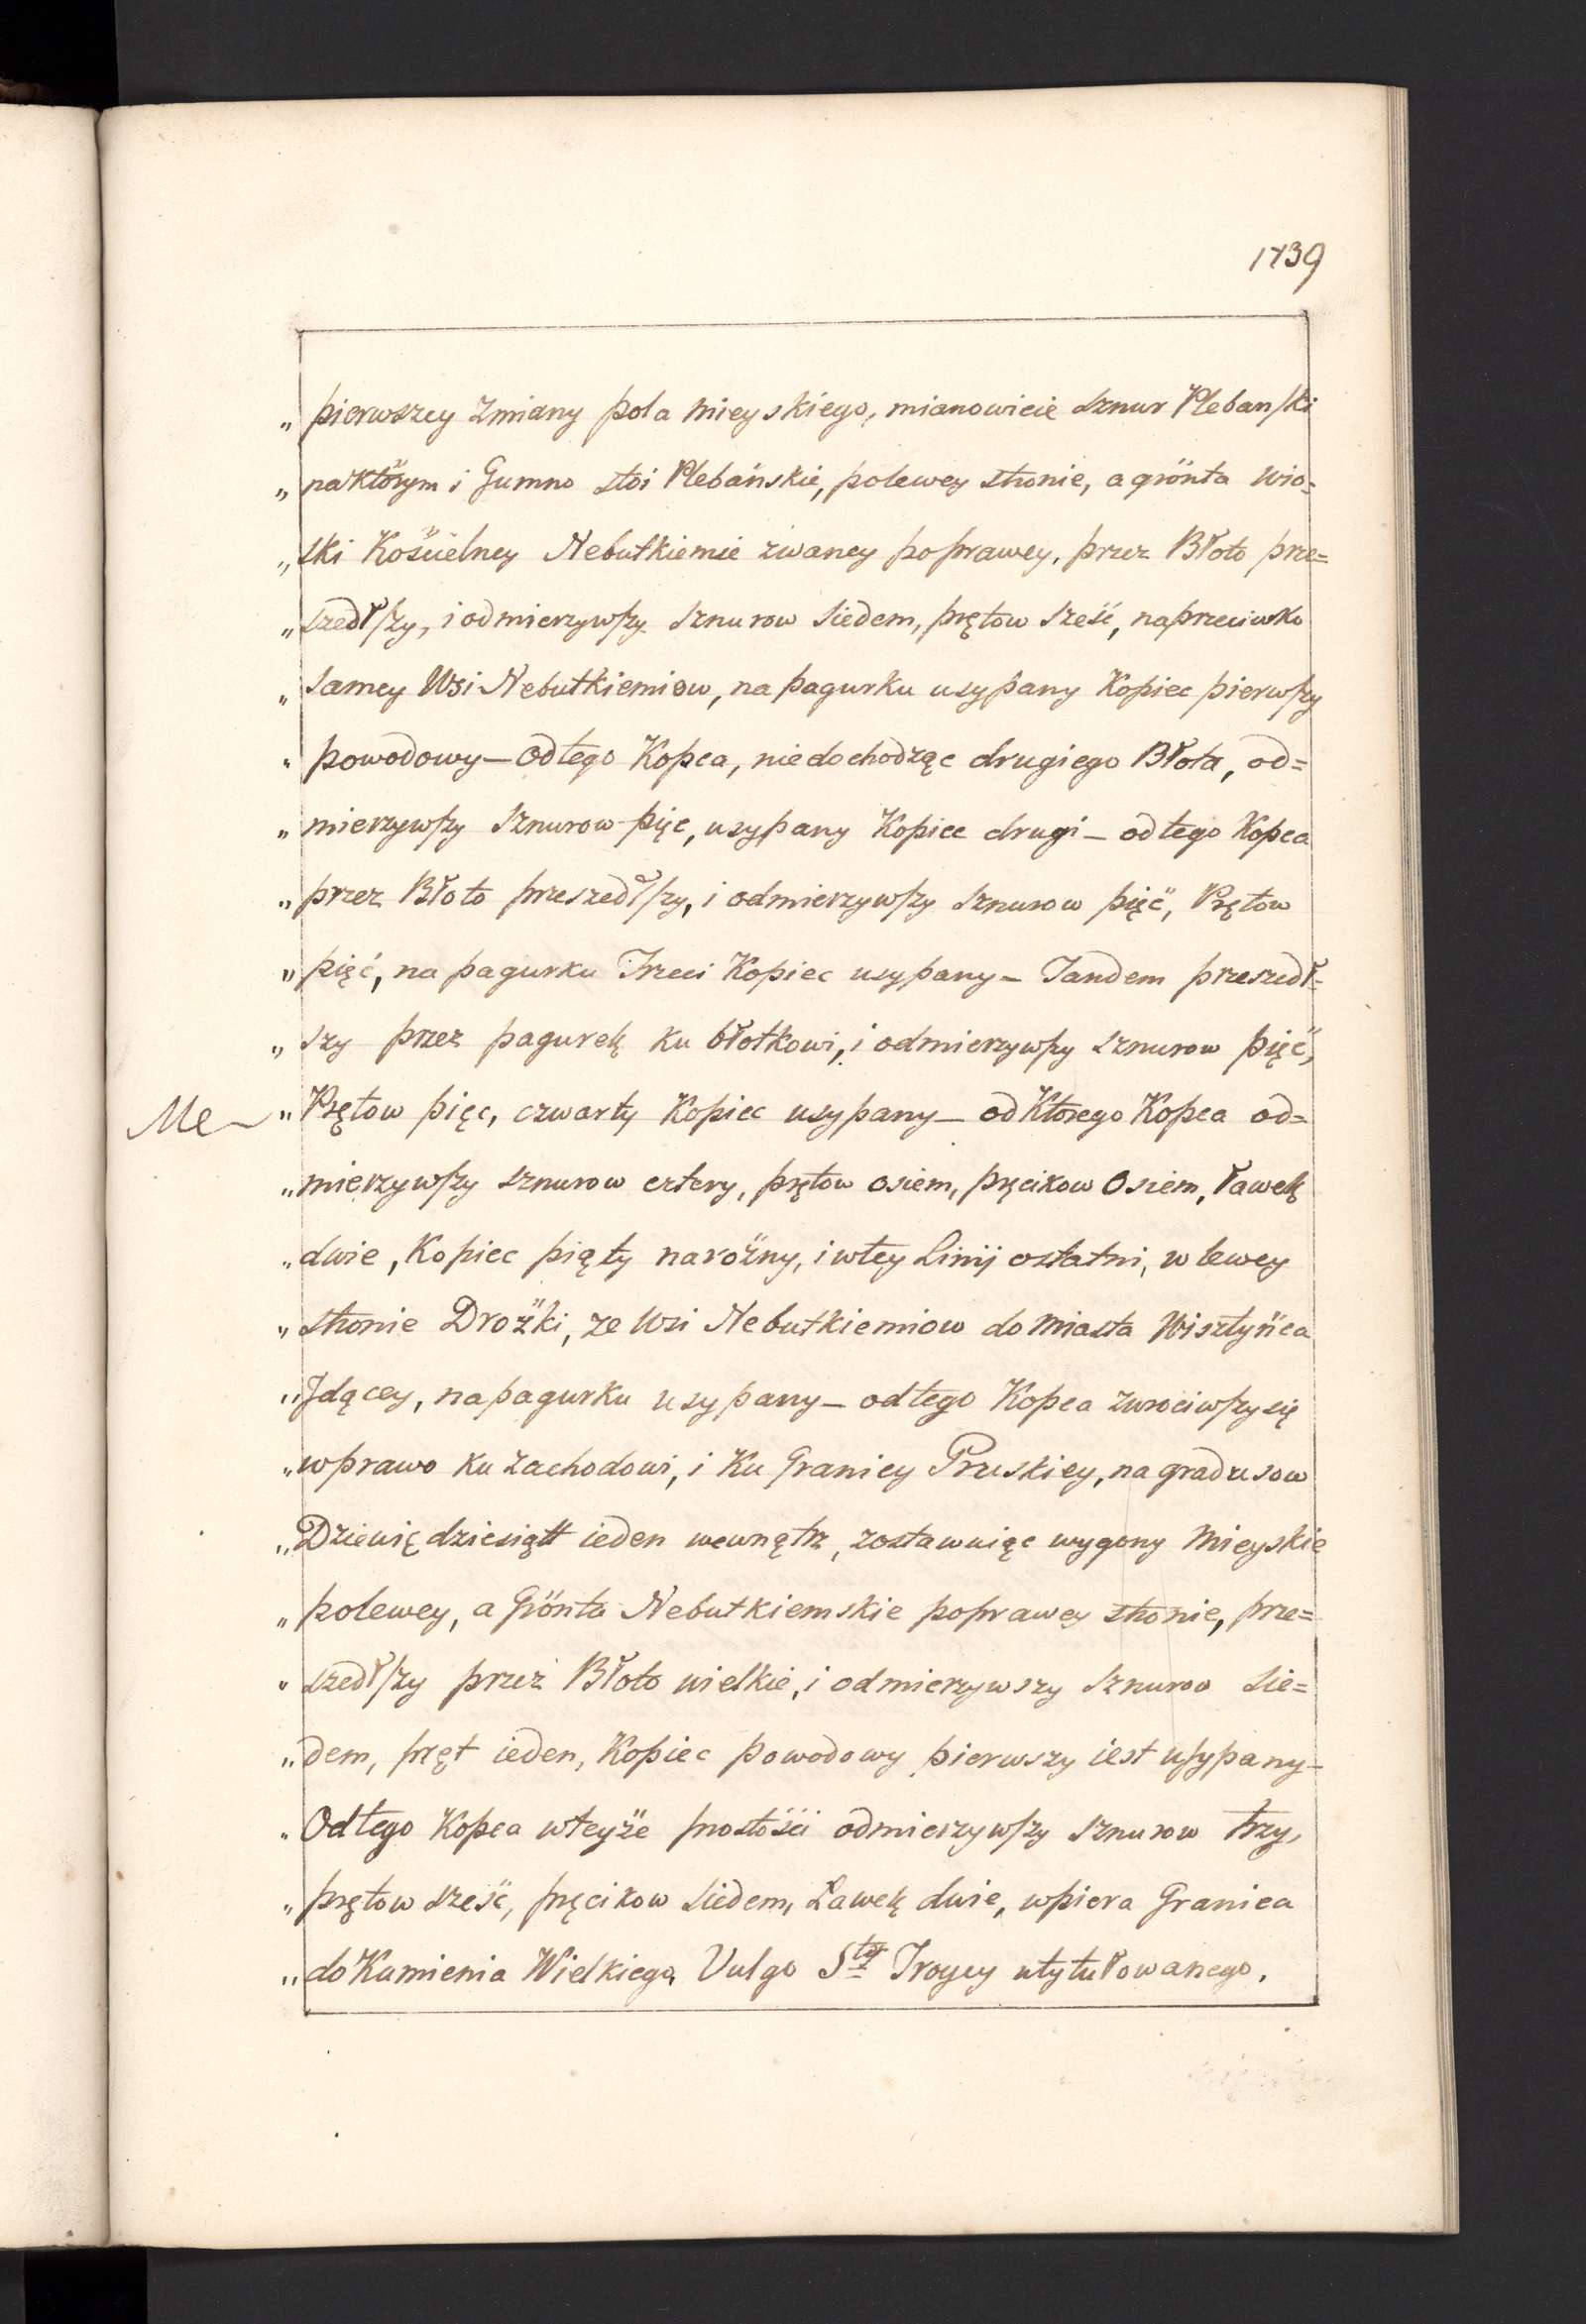 1739
„ pierwszey Zmiany pola Mieyskiego, mianowicie Sznur Plebanski
„ na którym i Gumno stoi Plebańskie, polewey stronie, a grönta Wio=
„ ski Kościelney Nebutkiemie zwaney poprawey, przez Błoto prze=
„ szedłszy, i odmierzywszy Sznurow Siedem, prętow Sześć, naprzeciwko
„ Samey Wsi Nebutkiemiow, na pagurku usypany Kopiec pierwszy
„ powodowy — Od tego Kopca, niedochodząc drugiego Błota, od=
„ mierzywszy Sznurow pięc, usypany Kopiec drugi — od tego Kopca
„ przez Błoto przeszedłszy, i odmierzywszy Sznurow pięć, Prętow
„ pięć, na pagurku Trzeci Kopiec usypany — Tandem przeszedł=
„ szy przez pagurek ku błotkowi, i odmierzywszy Sznurow pięć,
Me „ Prętow pięc, czwarty Kopiec usypany — od Ktorego Kopca od=
„ mierzywszy Sznurow cztery, prętow osiem, pręcikow Osiem, ławek
„ dwie, Kopiec piąty narożny, i wtey Linij ostatni, w lewey
„ stronie Drożki, ze Wsi Nebutkiemiow do Miasta Wisztyńca
„ Jdącey, na pagurku usypany — od tego Kopca zwrociwszy się
„ wprawo ku zachodowi, i Ku Granicy Pruskiey, na gradusow
„ Dziewiędziesiątt ieden wewnątrz, zostawuiąc wygony Mieyskie
„ polewey, a Grönta Nebutkiemskie poprawey stronie, prze=
„ szedłszy przez Błoto wielkie, i odmierzywszy Sznurow Sie=
„ dem, pręt ieden, Kopiec powodowy pierwszy iest usypany —
„ Od tego Kopca wteyże prostości odmierzywszy Sznurow trzy,
„ prętow sześć, pręcikow Siedem, Ławek dwie, wpiera Granica
„ do Kamienia Wielkiego, Vulgo Stey Troycy utytułowanego.